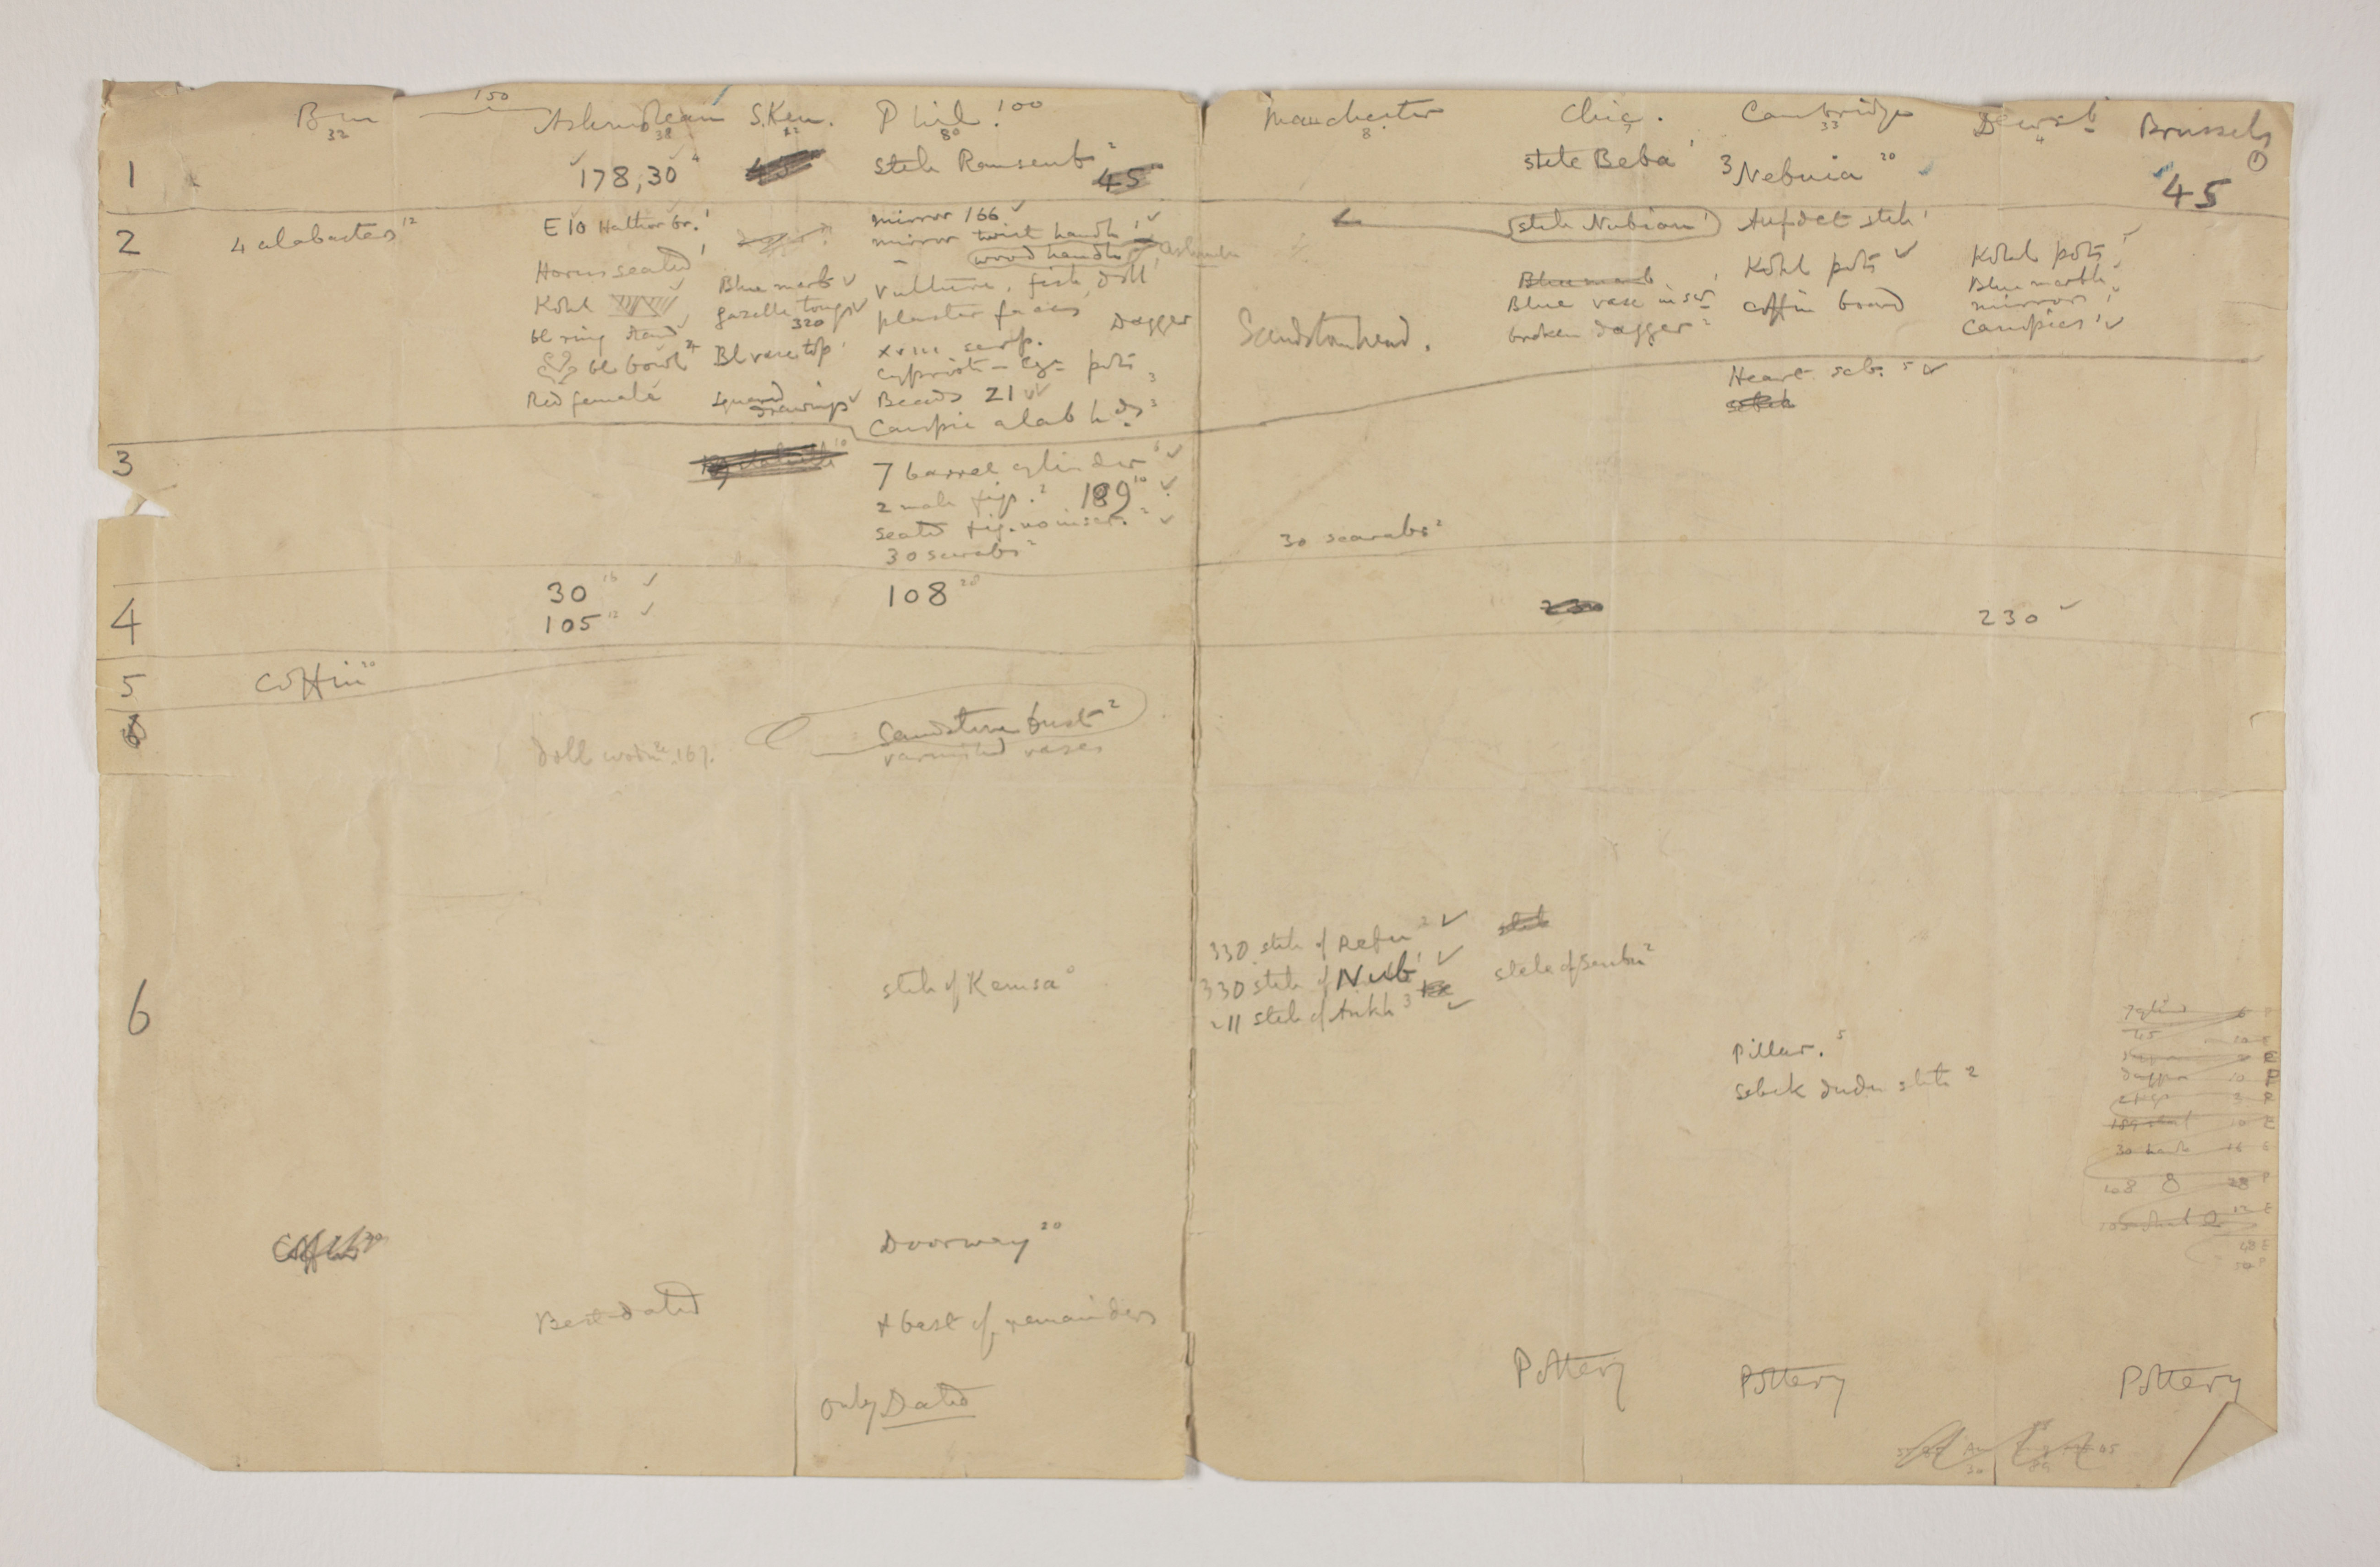 150
Bm Ashmolean S.Ken. Phil. 100 Manchester Chic. Cambridge Dewsb Brussels
32 38 12 80 8 33 4
1 178,30 4 45 Stele Ransenb 2 45 stele Beba 1 3 Nebuia 20 45
2 4 alabasters 12
E 10 Hathor br. 1
Horus seated 1
Kohl
bl ring stand
bl bowl 4
Red female
Blue marb
gazelle tongs
320
Bl vase top
squared
drawings
mirror 166
mirror twist handle 1
- wood handle
vulture, fish, doll
plaster faces
Dagger
XVIII sculp.
Cypriote - Eg= pots
Beads 21
3
Canopic alab hds 2
Sandstone head.
stele Nubian 1
Blue marb
Blue vase inscr 1
broken dagger 2
Aufdet stele 1
Kohl pots
coffin board
Heart scb. 5
stele
Kohl pots
Blue marble
mirror 1
Canopics 1
3
7 barrel cylinder 6
2 male figs. 2 189 10
seated fig. no inscr. 2
30 scarabs 2
30 scarabs 2
4
30 16
105 12
108 28
230
230
5 Coffin 20
6
Sandstone bust 2
varnished vases
doll wood 167.
6
stele of Kemsa
330 stele of Refu 2
330 stele of Nub 1
211 stele of Ankh 3
stele
stele of Senbu 2
Pillar. 5
Sebek dudu stele 2
45
dagger 10 P
30 16 E
108 28 P
Coffin 20
Doorway 20
Best dated
+ best of remainders
only Dated
Pottery Pottery Pottery